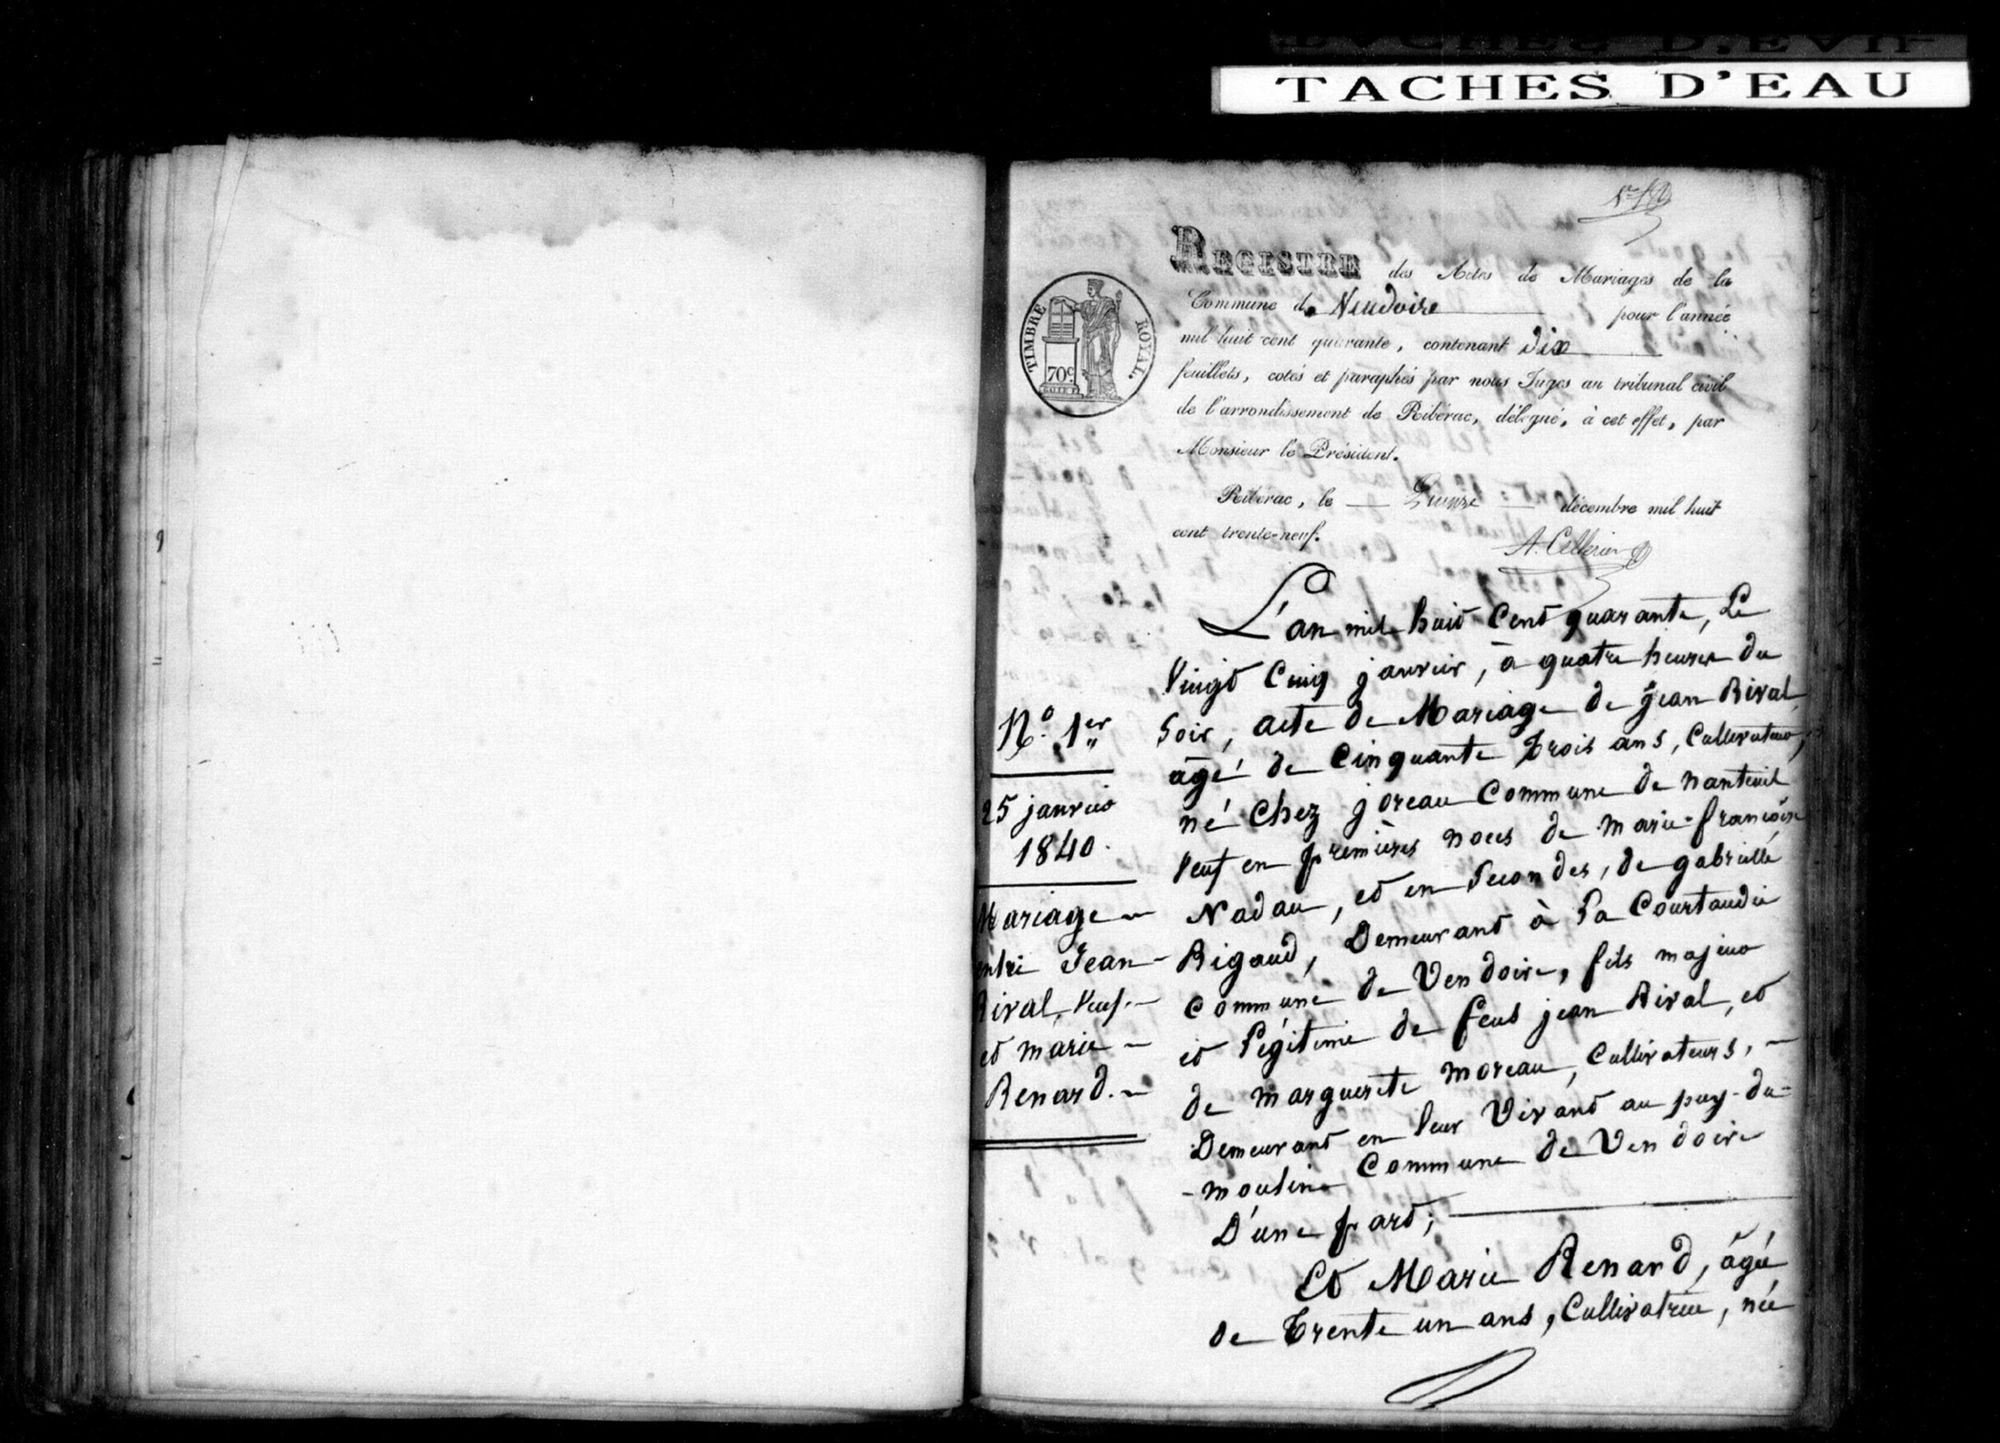 TACHES D'EAU
REGISTRE des Actes de Mariages de la
Commune de Vendoire pour l'année
mil huit cent quarante, contenant dix
feuillets, cotés et paraphés par nous Juges au tribunal civil
de l'arrondissement de Ribérac, délégué, à cet effet, par
Monsieur le Président.
TIMBRE ROYAL.
70c
Ribérac, le Quinze décembre mil huit
cent trente-neuf.
A. Cellerier
N.º 1er
25 janvier
1840.
Mariage
entre Jean
Rival, Veuf
et marie
Renard.
L'an mil huit Cent quarante, Le
Vingt Cinq janvier, à quatre heures du
Soir, acte de Mariage de jean Rival,
âgé de Cinquante trois ans, Cultivateur,
né Chez joreau Commune de nanteuil
Veuf en premières noces de marie-françoise
Nadau, et en Secondes, de gabrielle
Rigaud, Demeurant à La Courtaudie
Commune de Vendoire, fils majeur
et légitime de feus jean Rival, et
de marguerite moreau, Cultivateurs,
Demeurant en leur Vivant au puy-du-
-moulin Commune de Vendoire
D'une part;
Et Marie Renard, âgée
de trente un ans, Cultivatrice, née